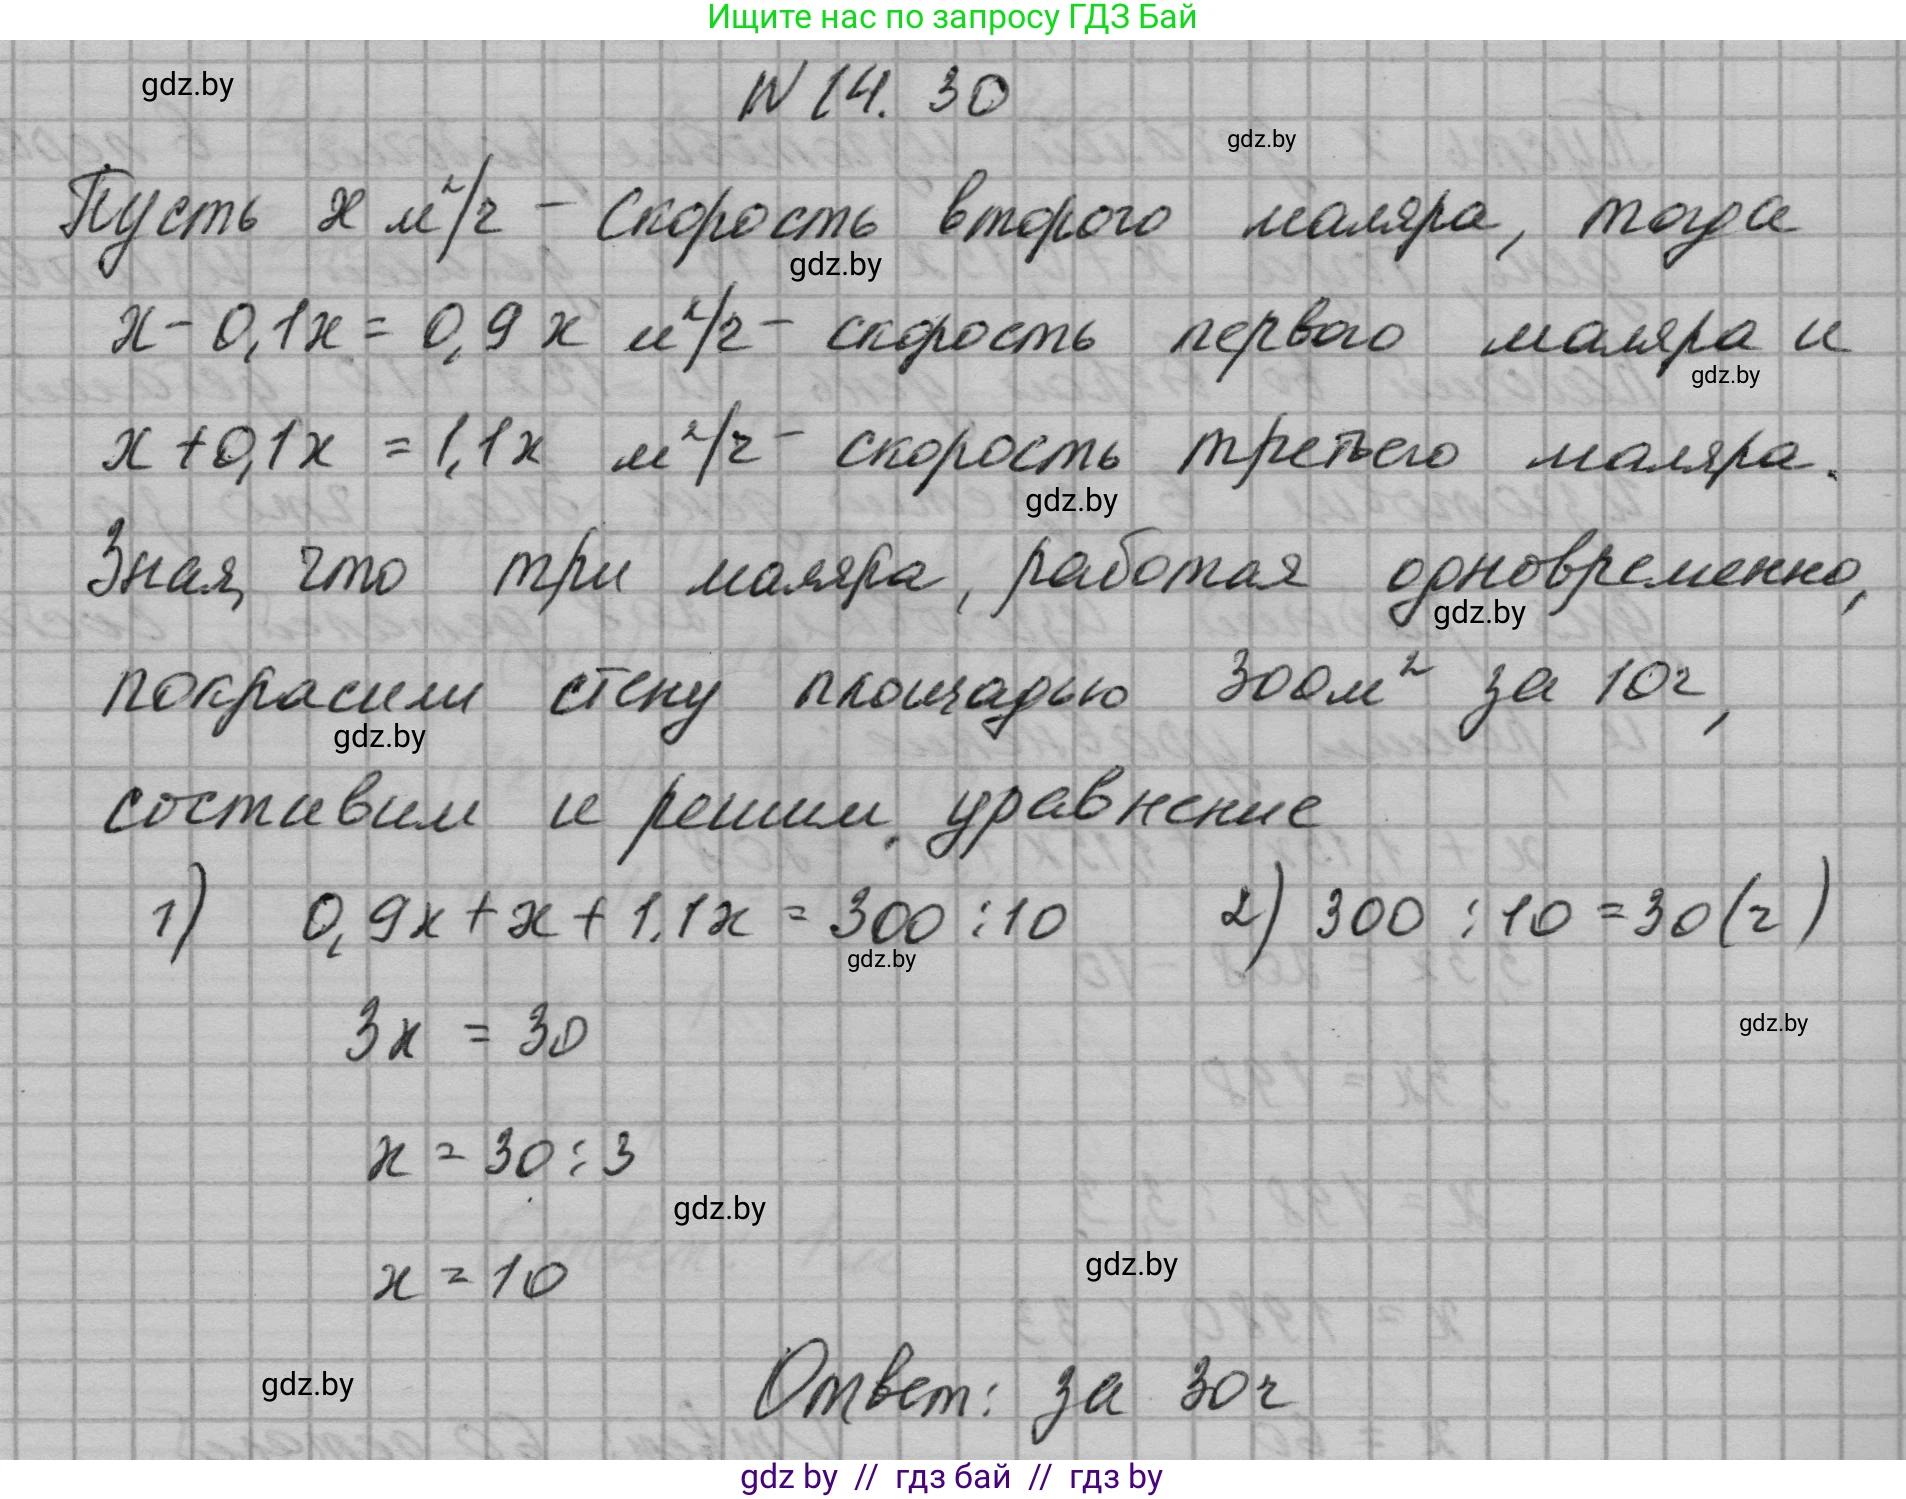 Ищите нас по запросу ГДЗ Бай
gdz.by
N 14. 30
gdz.by
Пусть x м²/ч - скорость второго маляра, тогда
gdz.by
x - 0,1x = 0,9x м²/ч - скорость первого маляра и
gdz.by
x + 0,1x = 1,1x м²/ч - скорость третьего маляра.
gdz.by
Зная, что три маляра, работая одновременно,
gdz.by
покрасили стену площадью 300м² за 10ч,
gdz.by
составим и решим уравнение
1) 0,9x + x + 1,1x = 300 : 10 2) 300 : 10 = 30 (ч)
gdz.by
3x = 30
gdz.by
x = 30 : 3
gdz.by
x = 10
gdz.by
Ответ: за 30ч
gdz.by
gdz by // гдз бай // гдз by